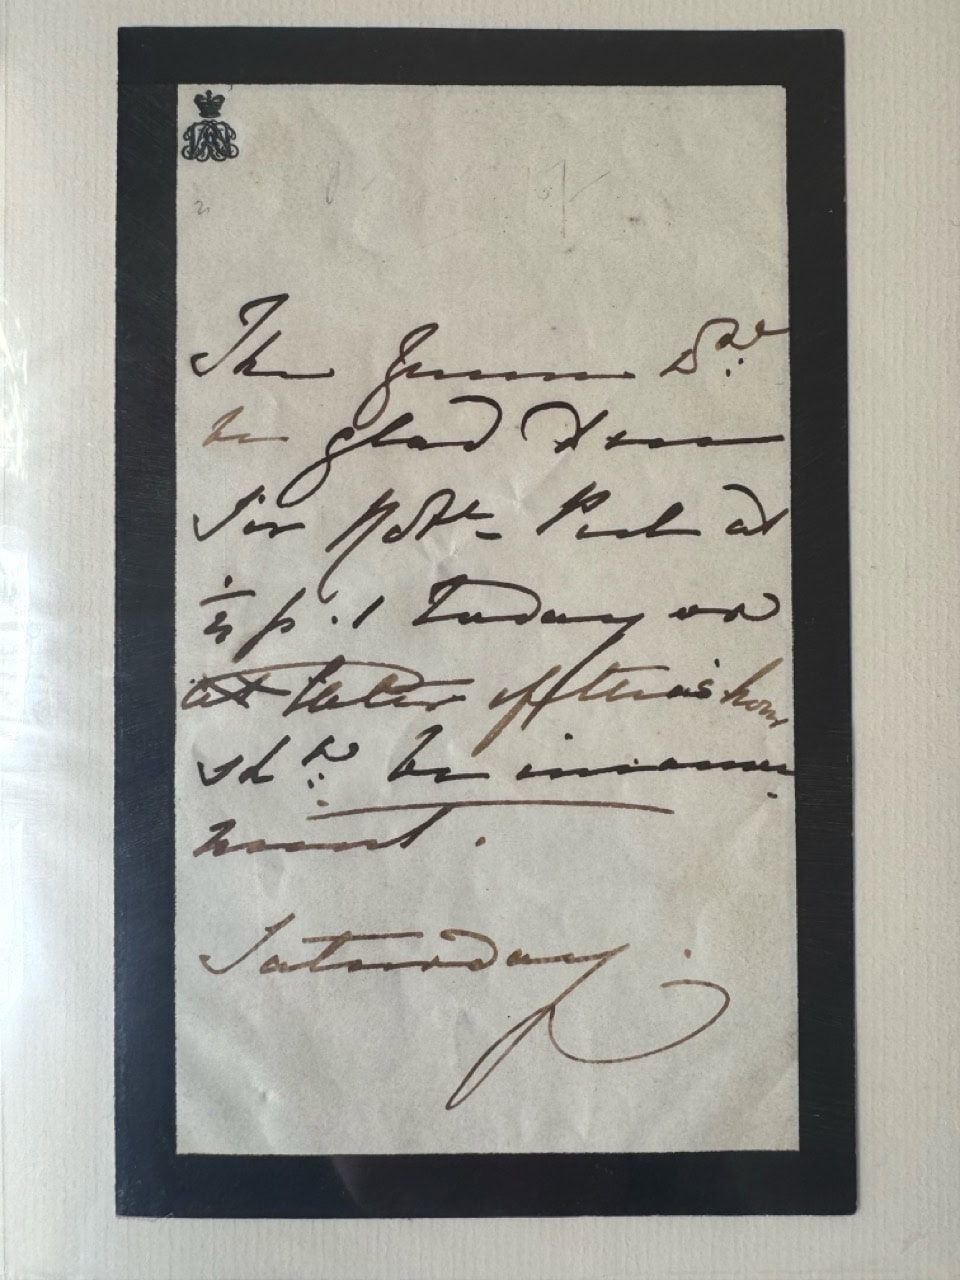 The Queen wd.
be glad to see
Sir Robt. Peel at
½ p. 1 today or
at later if this hour
shd. be inconve-
nient.
Saturday.